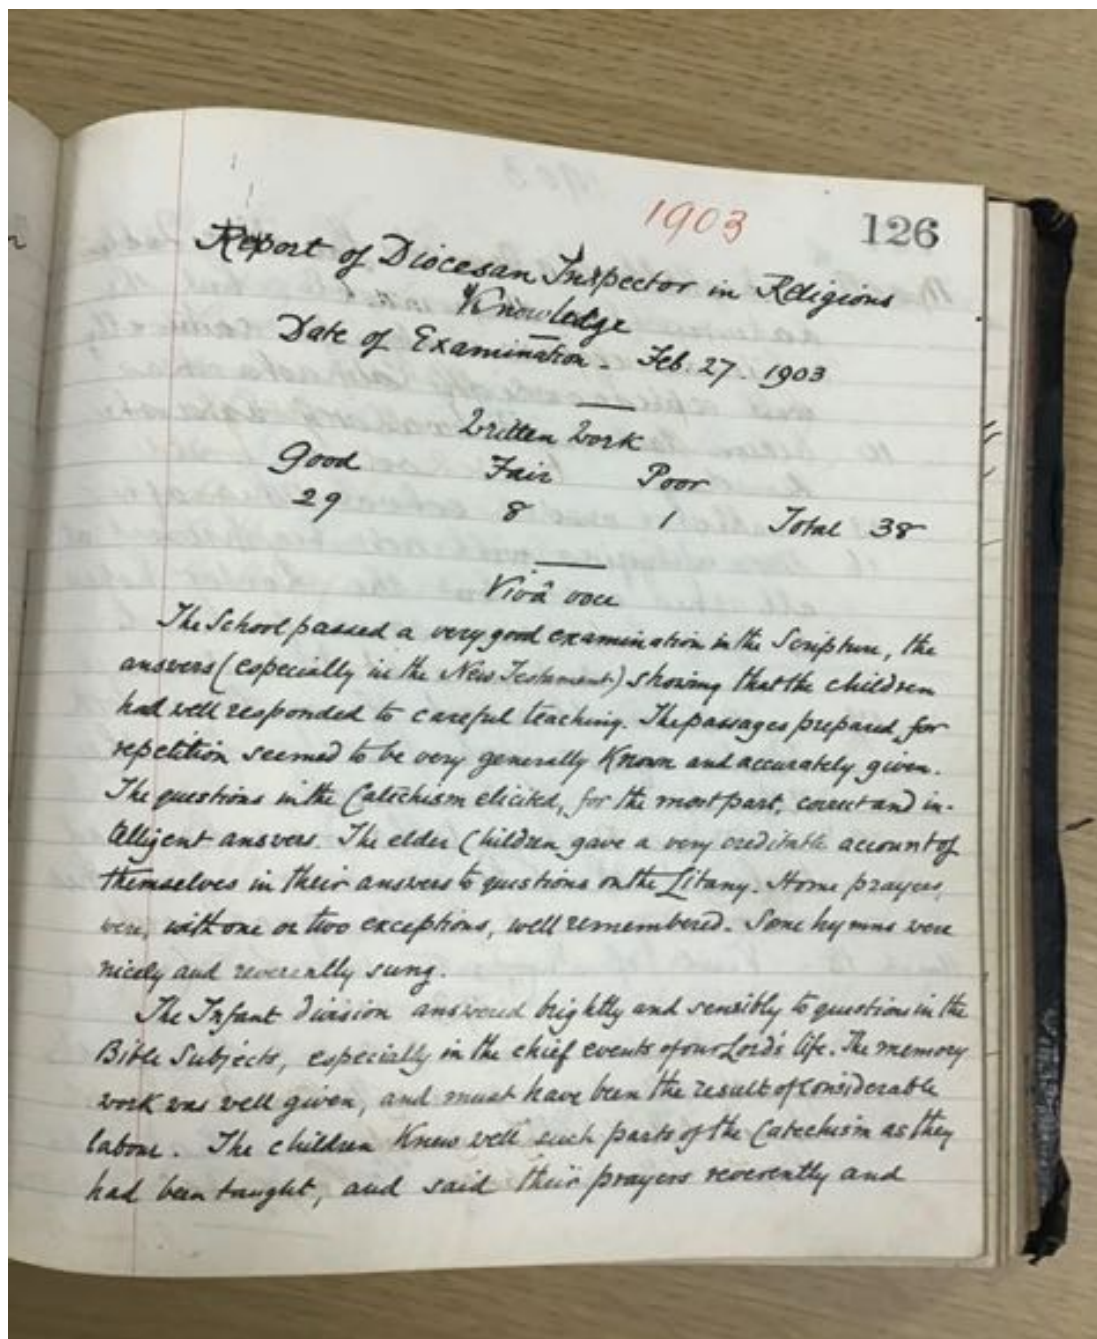 1903
126
Report of Diocesan Inspector in Religious
Knowledge
Date of Examination. Feb. 27. 1903
Written Work
Good Fair Poor
29 8 1 Total 38
Vivâ voce
The School passed a very good examination in the Scripture, the
answers (especially in the New Testament) showing that the children
had well responded to careful teaching. The passages prepared for
repetition seemed to be very generally known and accurately given.
The questions in the Catechism elicited, for the most part, correct and in-
telligent answers. The elder Children gave a very creditable account of
themselves in their answers to questions on the Litany. Home prayers,
were, with one or two exceptions, well remembered. Some hymns were
nicely and reverently sung.
The Infant division answered brightly and sensibly to questions in the
Bible Subjects, especially in the chief events of our Lord's life. The memory
work was well given, and must have been the result of considerable
labour. The children knew well such parts of the Catechism as they
had been taught, and said their prayers reverently and